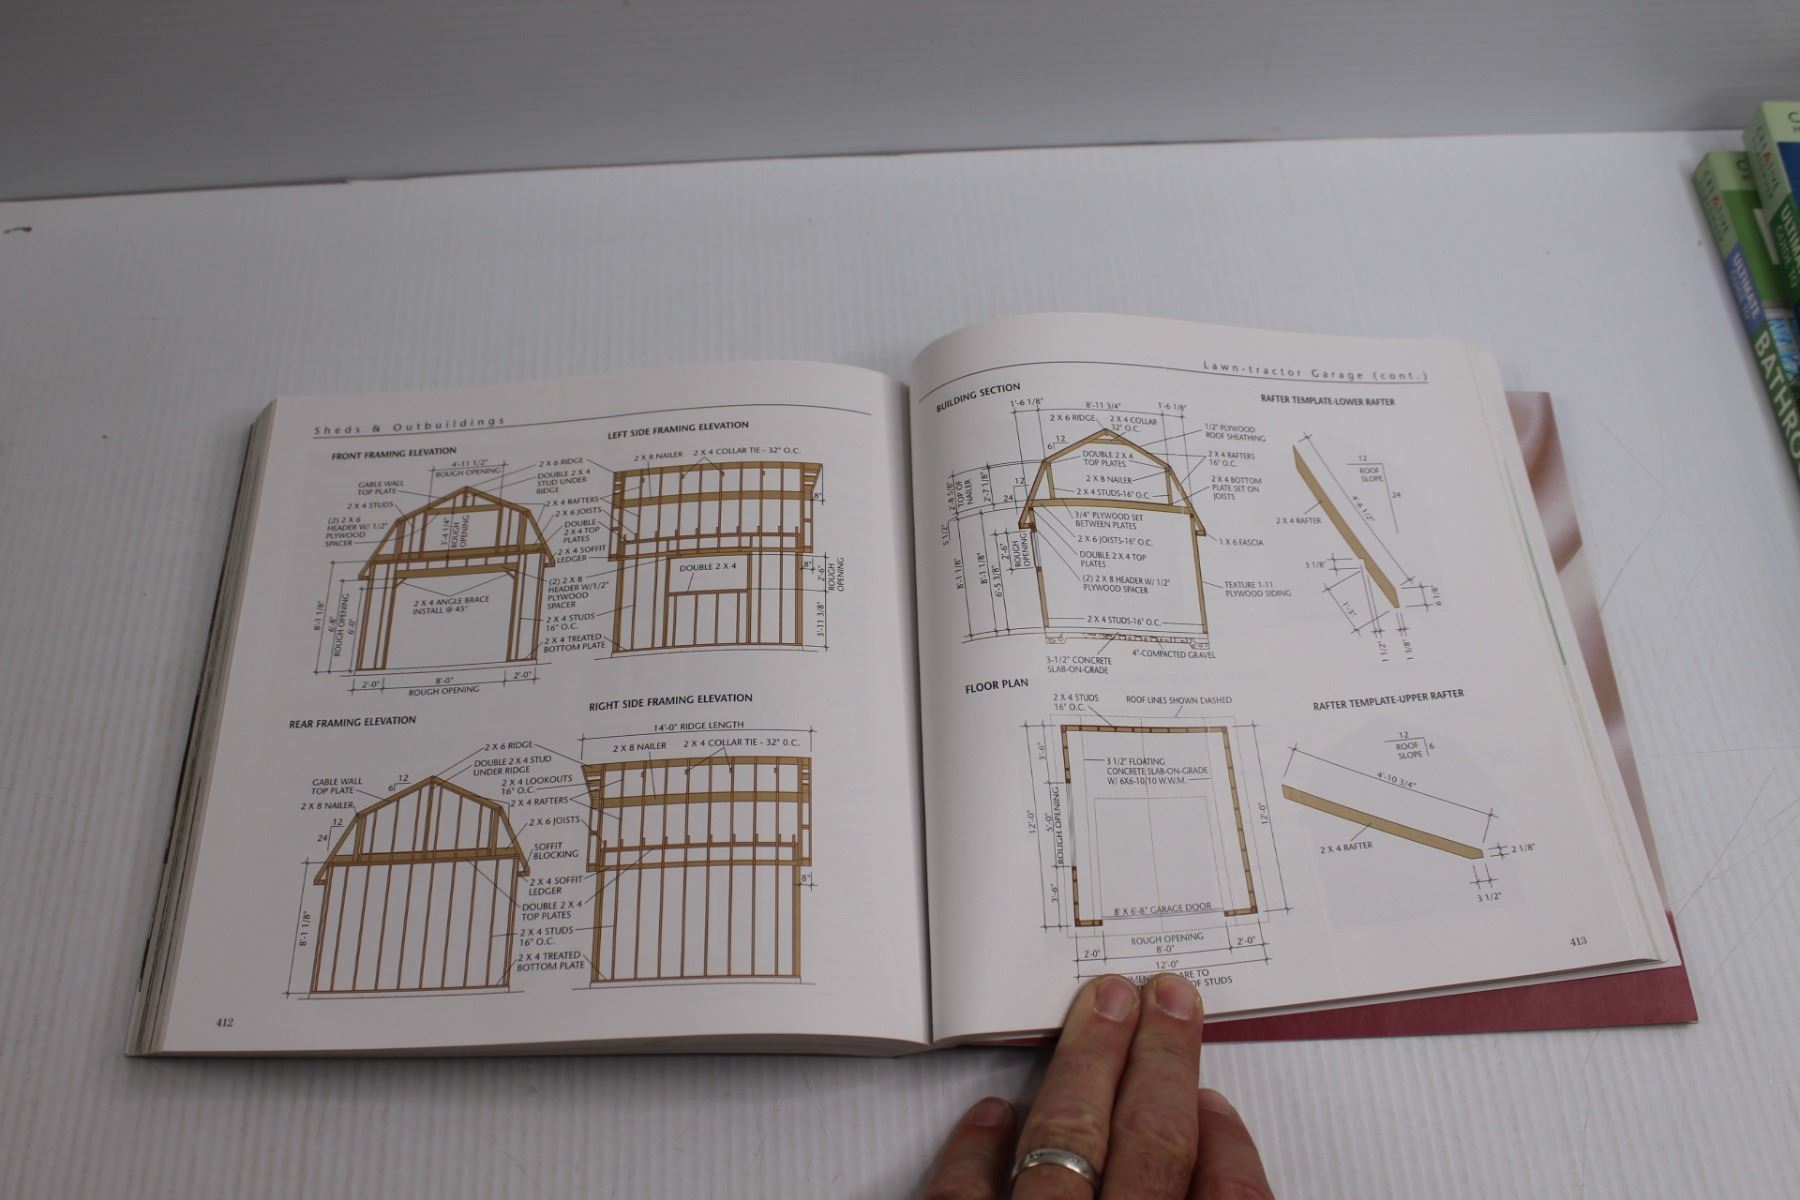 Sheds & Outbuildings
FRONT FRAMING ELEVATION
4'-11 1/2"
ROUGH OPENING
GABLE WALL
TOP PLATE
2 X 4 STUDS
(2) 2 X 6
HEADER W/ 1/2"
PLYWOOD
SPACER
3'-4 1/4"
ROUGH
OPENING
2 X 6 RIDGE
DOUBLE 2 X 4
STUD UNDER
RIDGE
2 X 4 RAFTERS
2 X 6 JOISTS
DOUBLE
2 X 4 TOP
PLATES
2 X 4 SOFFIT
LEDGER
(2) 2 X 8
HEADER W/1/2"
PLYWOOD
SPACER
2 X 4 ANGLE BRACE
INSTALL @ 45°
2 X 4 STUDS
16" O.C.
2 X 4 TREATED
BOTTOM PLATE
8'-1 1/8"
6'-8"
ROUGH OPENING
6'-0"
2'-0"
8'-0"
2'-0"
ROUGH OPENING
LEFT SIDE FRAMING ELEVATION
2 X 8 NAILER
2 X 4 COLLAR TIE - 32" O.C.
8"
DOUBLE 2 X 4
8"
2'-6"
ROUGH
OPENING
3'-11 3/8"
REAR FRAMING ELEVATION
2 X 6 RIDGE
DOUBLE 2 X 4 STUD
UNDER RIDGE
GABLE WALL
TOP PLATE
12
6
2 X 8 NAILER
12
24
2 X 4 LOOKOUTS
16" O.C.
2 X 4 RAFTERS
2 X 6 JOISTS
SOFFIT
BLOCKING
2 X 4 SOFFIT
LEDGER
DOUBLE 2 X 4
TOP PLATES
2 X 4 STUDS
16" O.C.
2 X 4 TREATED
BOTTOM PLATE
8'-1 1/8"
RIGHT SIDE FRAMING ELEVATION
14'-0" RIDGE LENGTH
2 X 8 NAILER
2 X 4 COLLAR TIE - 32" O.C.
8"
412
Lawn-tractor Garage (cont.)
BUILDING SECTION
1'-6 1/8"
8'-11 3/4"
1'-6 1/8"
2 X 6 RIDGE
2 X 4 COLLAR
32" O.C.
1/2" PLYWOOD
ROOF SHEATHING
12
6
DOUBLE 2 X 4
TOP PLATES
2 X 4 RAFTERS
16" O.C.
2 X 8 NAILER
2 X 4 BOTTOM
PLATE SET ON
JOISTS
2 X 4 STUDS-16" O.C.
12
24
2'-8 5/8"
TOP OF
NAILER
2'-7 1/8"
3/4" PLYWOOD SET
BETWEEN PLATES
5 1/2"
2 X 6 JOISTS-16" O.C.
1 X 6 FASCIA
2'-6"
ROUGH
OPENING
DOUBLE 2 X 4 TOP
PLATES
(2) 2 X 8 HEADER W/ 1/2"
PLYWOOD SPACER
TEXTURE 1-11
PLYWOOD SIDING
8'-1 1/8"
8'-1 1/8"
6'-5 3/8"
2 X 4 STUDS-16" O.C.
4"-COMPACTED GRAVEL
3-1/2" CONCRETE
SLAB-ON-GRADE
RAFTER TEMPLATE-LOWER RAFTER
12
ROOF
SLOPE
24
4'-6 1/2"
2 X 4 RAFTER
3 1/8"
1'-3"
6 1/8"
1 1/2"
1 3/8"
FLOOR PLAN
2 X 4 STUDS
16" O.C.
ROOF LINES SHOWN DASHED
3'-6"
3 1/2" FLOATING
CONCRETE SLAB-ON-GRADE
W/ 6X6-10/10 W.W.M.
12'-0"
5'-0"
ROUGH OPENING
12'-0"
3'-6"
8' X 6'-8" GARAGE DOOR
ROUGH OPENING
2'-0"
8'-0"
2'-0"
12'-0"
ARE TO
OF STUDS
RAFTER TEMPLATE-UPPER RAFTER
12
ROOF
SLOPE
6
4'-10 3/4"
2 X 4 RAFTER
2 1/8"
3 1/2"
413
ULTIMATE
GUIDE TO
BATHRO
ULTIMA
GUIDE TO